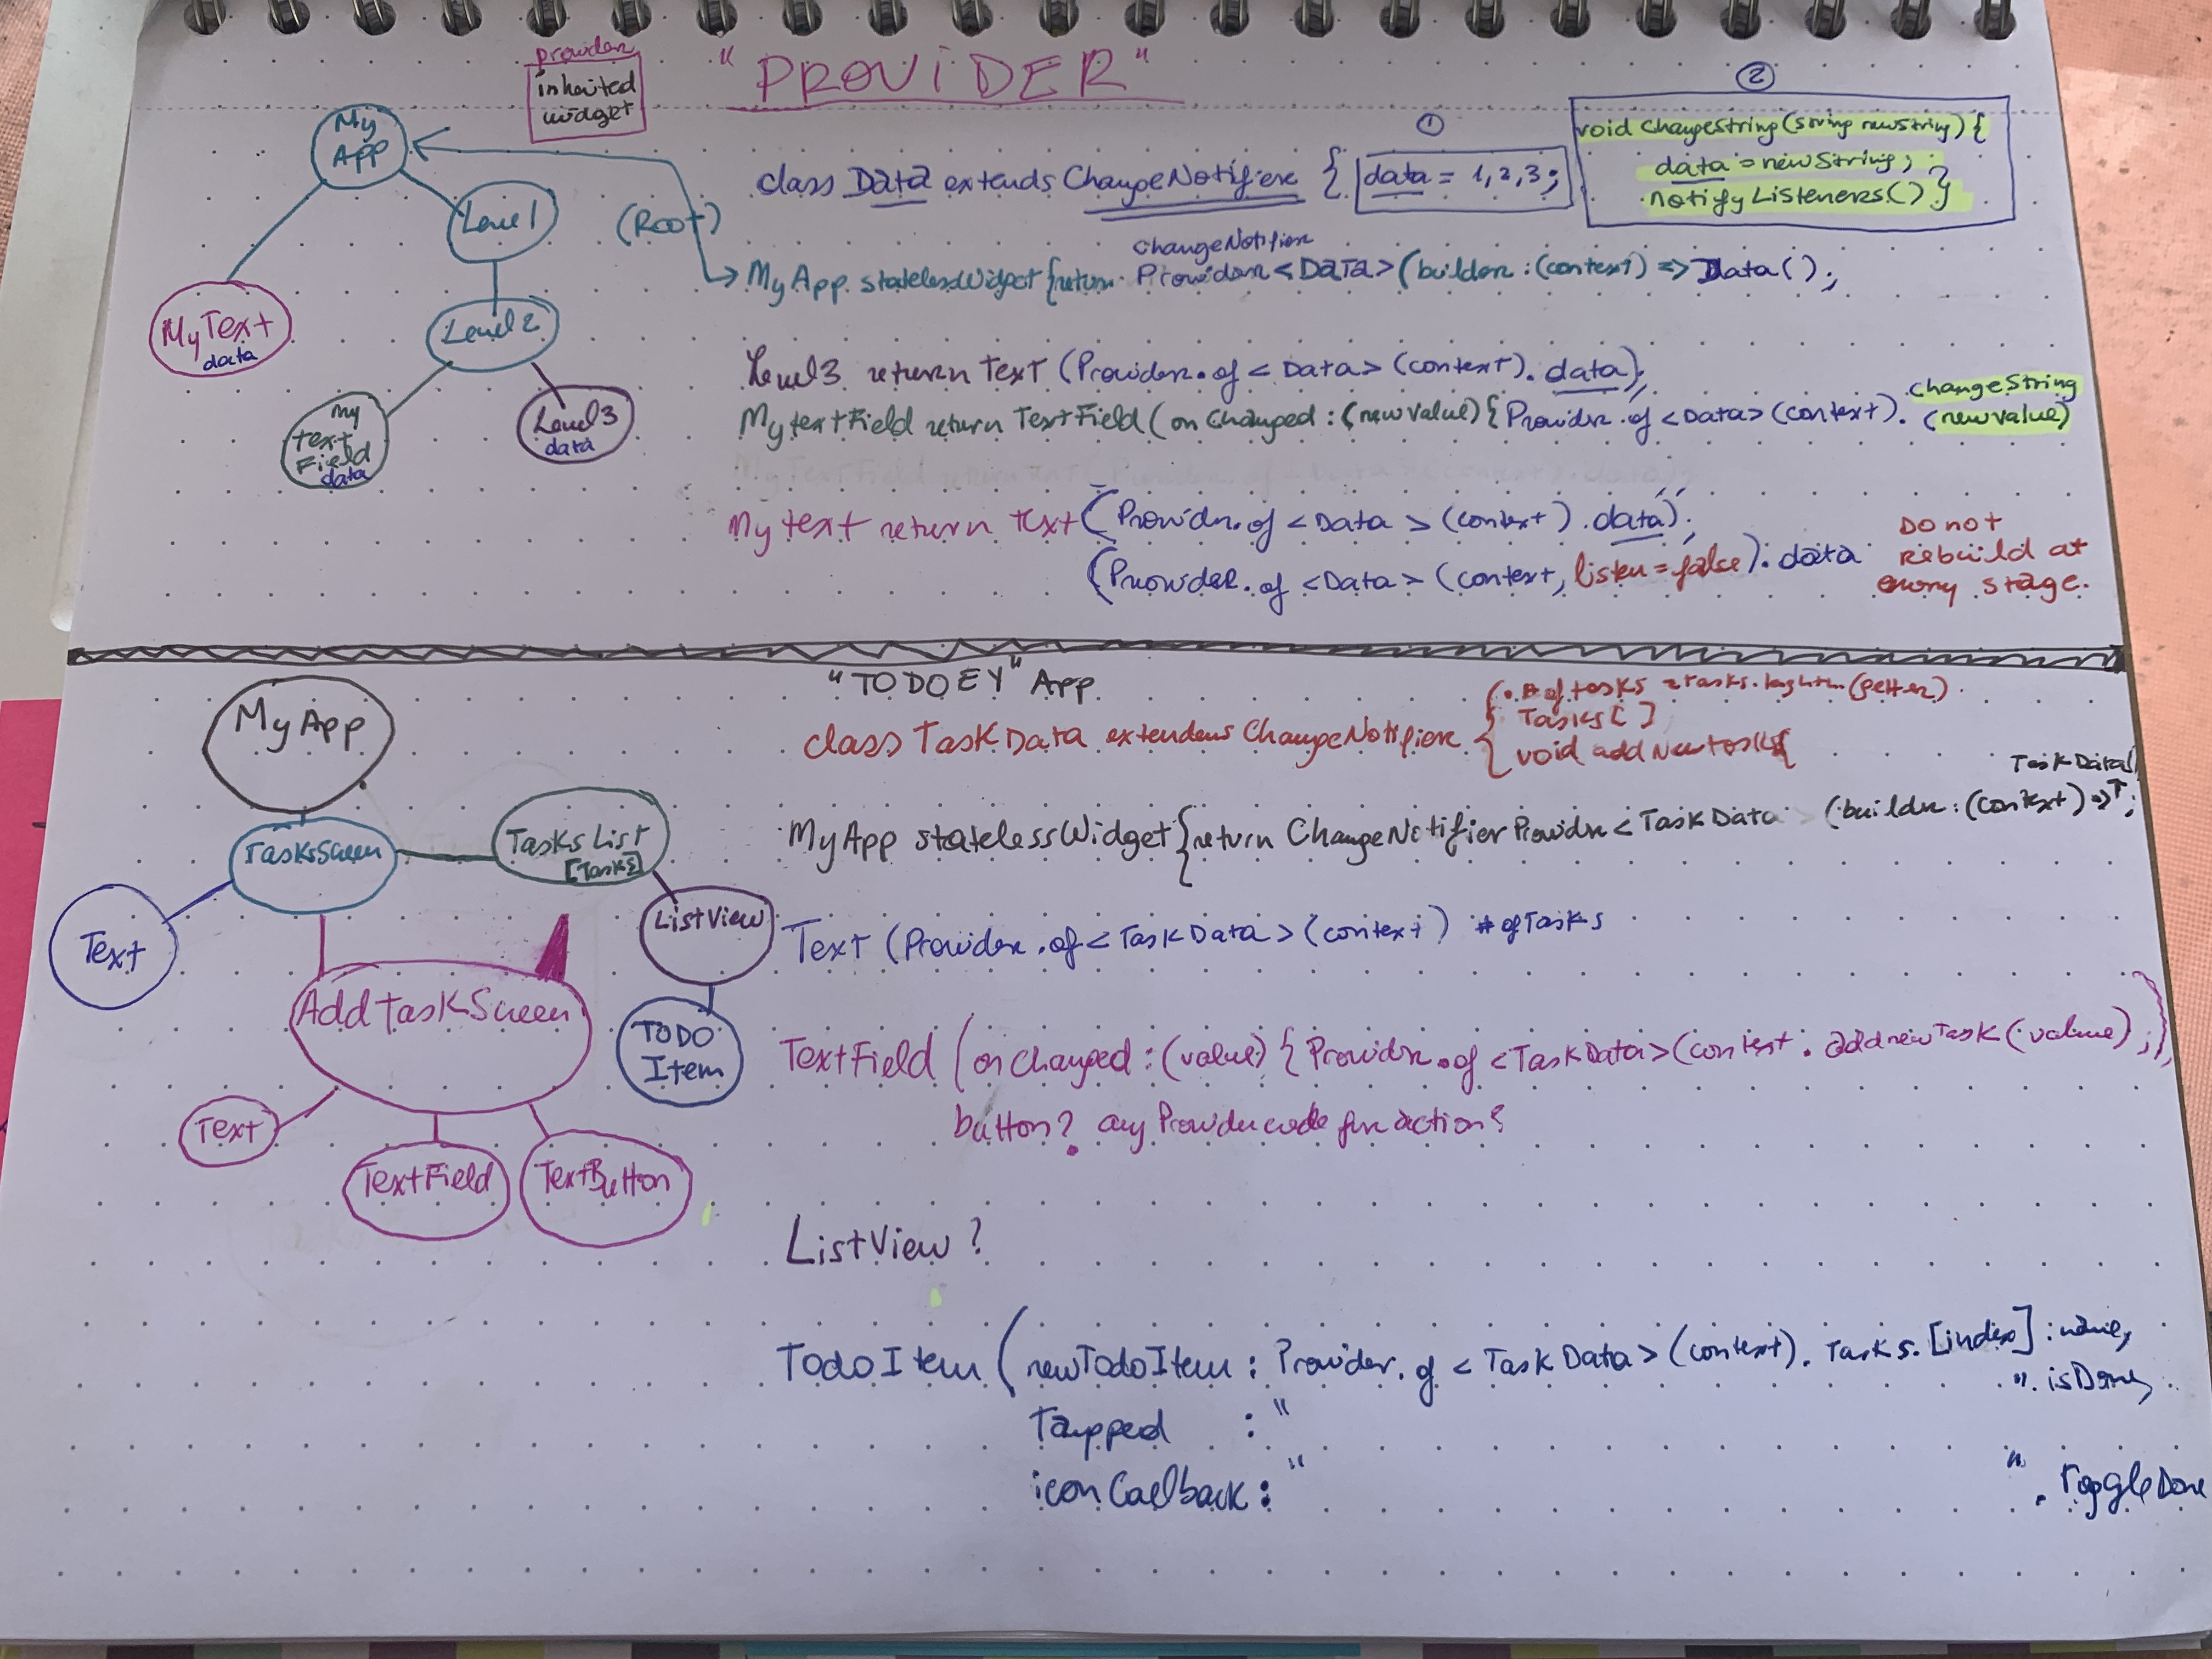 "PROVIDER"
provider
inherited
widget
My
App
Level 1
(Root)
Level 2
MyText
data
my
text
Field
data
Level3
data
①
②
class Data extends ChangeNotifier { data = 1,2,3;
void ChangeString(string newString) {
data = newString;
notifyListeners() }
ChangeNotifier
MyApp statelessWidget {return Provider <Data> (builder : (context) => Data();
Level3 return Text (Provider.of <Data> (context). data);
MytextField return TextField (onChanged : (newValue) { Provider.of <Data> (context). changeString
(newvalue)
My text return text (Provider.of <Data> (context). data);
(Provider.of <Data> (context, listen = false). data
Do not
Rebuild at
every stage.
"TODOEY" App
MyApp
TasksScreen
Tasks List
[Tasks]
Text
ListView
AddtaskScreen
TODO
Item
Text
TextField
TextButton
class TaskData extendens ChangeNotifier {
# of tasks = tasks.leghth (getter)
Tasks [ ]
void addNewTask{
TaskData()
MyApp statelessWidget {return ChangeNotifierProvider <TaskData> (builder : (context) => ;
Text (Provider.of <TaskData> (context) # of Tasks
TextField (onChanged : (value) { Provider.of <TaskData> (context. addnewTask (value) ; })
button? any Provider code for action?
ListView ?
TodoItem (newTodoItem : Provider.of <TaskData> (context). Tasks. [index] : name,
". isDone,
Tapped : "
iconCallback : " " . toggleDone